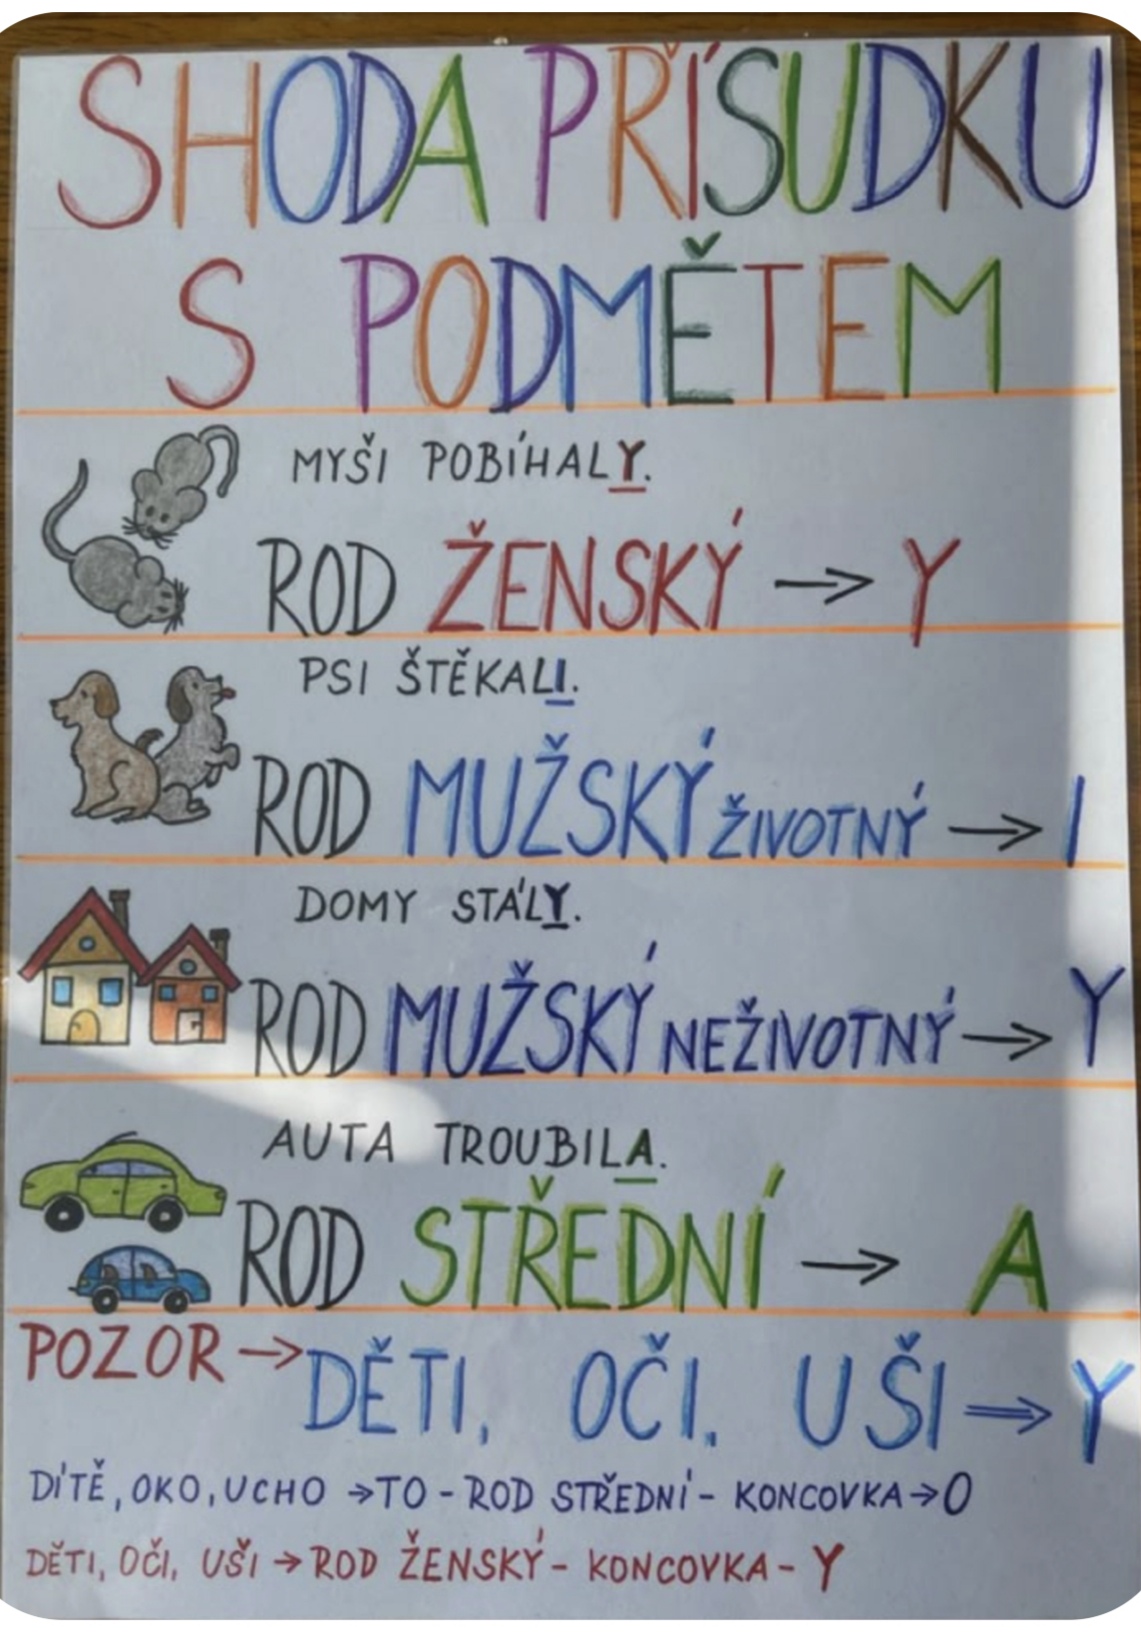 SHODA PŘÍSUDKU
S PODMĚTEM
MYŠI POBÍHALY.
ROD ŽENSKÝ → Y
PSI ŠTĚKALI.
ROD MUŽSKÝ ŽIVOTNÝ → I
DOMY STÁLY.
ROD MUŽSKÝ NEŽIVOTNÝ → Y
AUTA TROUBILA.
ROD STŘEDNÍ → A
POZOR → DĚTI, OČI, UŠI → Y
DÍTĚ, OKO, UCHO → TO - ROD STŘEDNÍ - KONCOVKA → O
DĚTI, OČI, UŠI → ROD ŽENSKÝ - KONCOVKA - Y